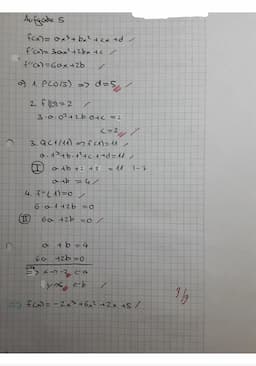 Aufgabe 5
f(x) = ax³ + bx² + cx + d
f'(x) = 3ax² + 2bx + c
f''(x) = 6ax + 2b
a) 1. P(0/5) => d = 5
2. f'(0) = 2
3·a·0² + 2b·0 + c = 2
c = 2
3. Q(1/11) => f(1) = 11
a·1³ + b·1² + c·1 + d = 11
I a + b + 2 + 5 = 11 |-7
a + b = 4
4. f''(1) = 0
6·a·1 + 2b = 0
II 6a + 2b = 0
a + b = 4
6a + 2b = 0
=> x = -2 = a
y = 6 = b
=> f(x) = -2x³ + 6x² + 2x + 5
9/9